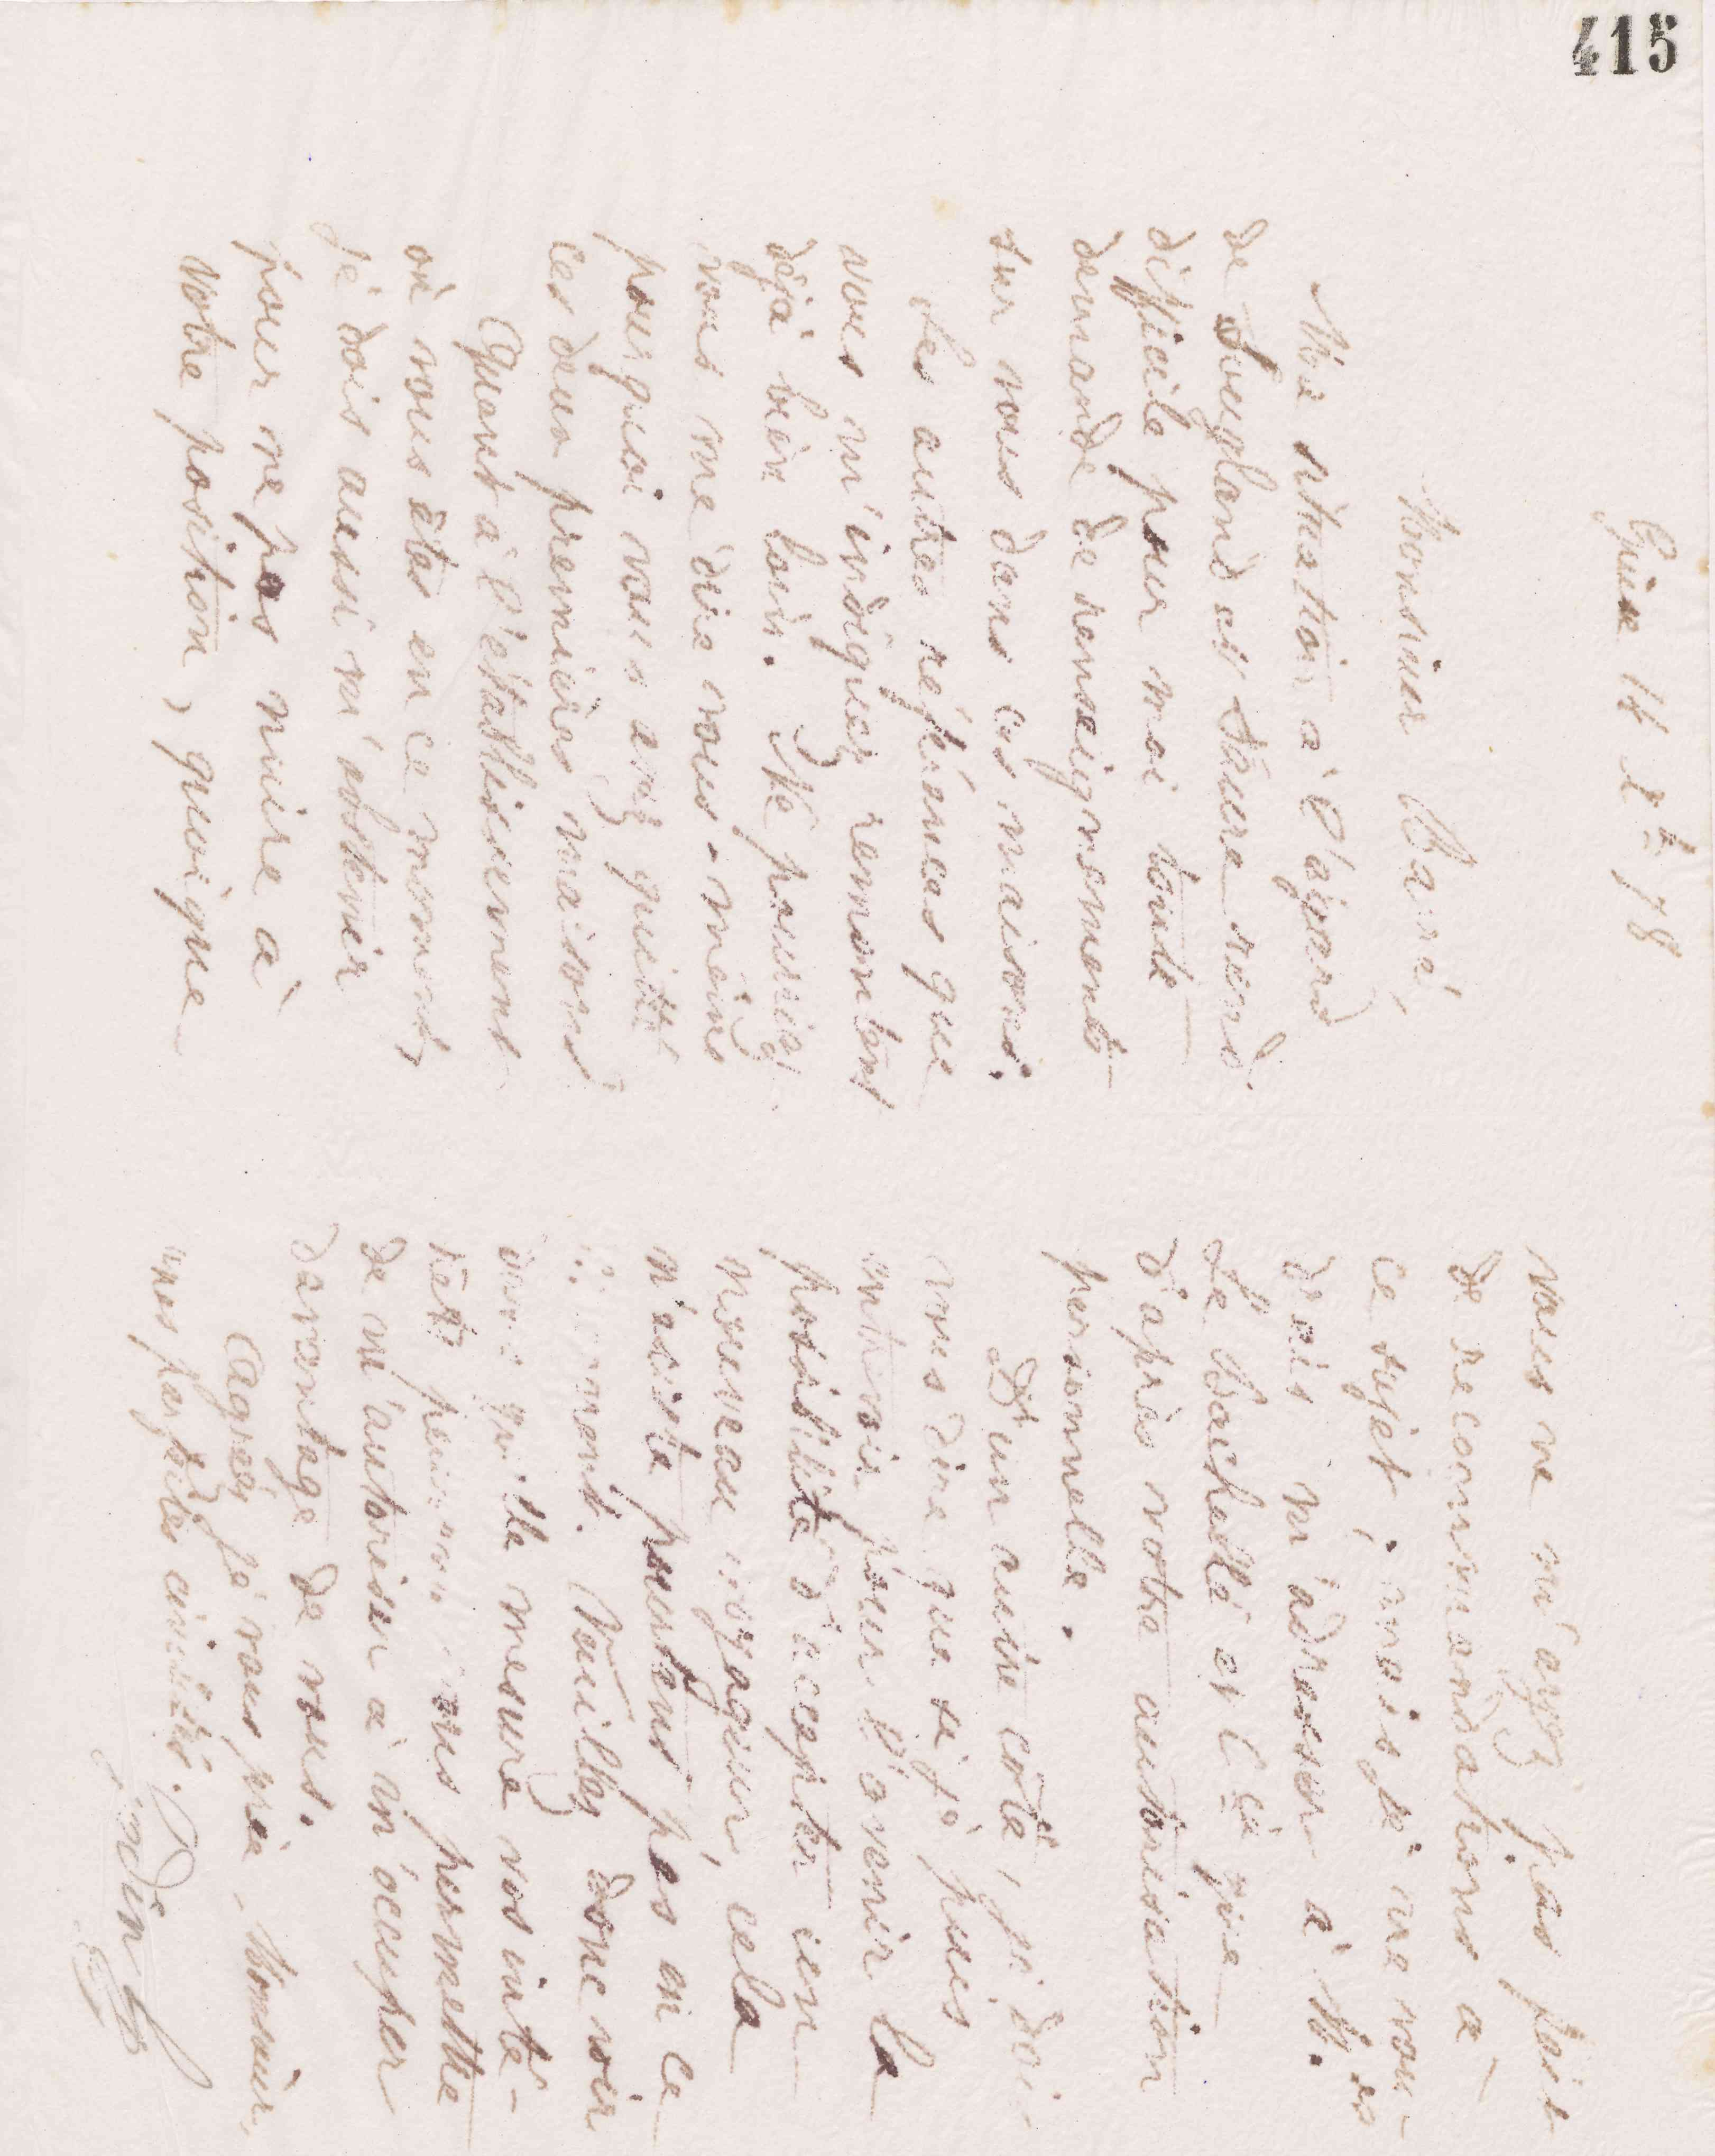 415
Guise 14 Xbre 78
Monsieur Barré,
Ma situation à l'égard
de Sougland et Faure rend
difficile pour moi toute
demande de renseignements
sur vous dans ces maisons.
Les autres références que
vous m'indiquez remontent
déjà bien loin. Ne pourriez
vous me dire vous-même
pourquoi vous avez quitté
ces deux premières maisons
Quant à l'établissement
où vous êtes en ce moment,
je dois aussi m'abstenir
pour ne pas nuire à
votre position, quoique
vous ne m'ayez pas fait
de recommandations à
ce sujet ; mais je ne vou-
drais m'adresser à M.
de Bachellé et Cie que
d'après votre autorisation
personnelle.
D'un autre côté, je dois
vous dire que si je puis
entrevoir pour l'avenir la
possibilité d'accepter un
nouveau mogageur, cela
n'existe pourtant pas en ce
moment. Veuillez donc voir
dans quelle mesure vos inté-
rêts peuvent vous permettre
de m'autoriser à m'occuper
davantage de vous.
Agréez je vous prie, Monsieur,
mes parfaites civilités.
Godin